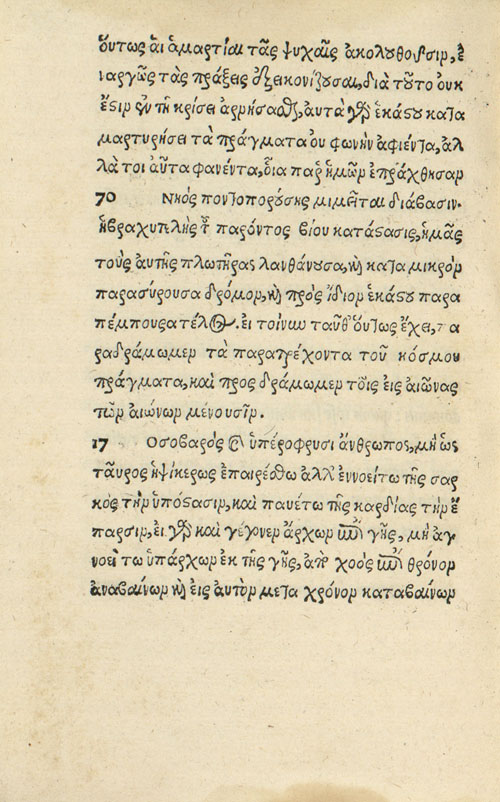 ὅυτως ἁι ἁμαρτίαι τᾶς ψυχαῖς ἀκολουθοῦσιν, ἐ
ναργῶς τὰς πράξεις ἐξεικονίζουσαι, διὰ τοῦτο ουκ
ἔστιν ἐν τῆ κρίσει ἀρνήσασθαι, ἀυτὰ γὰρ ἑκάστου κατα
μαρτυρήσει τὰ πράγματα ου φωνὴν ἀφιέντα, ἀλ
λὰ τοι ἀῦτα φανέντα, ὁῖα παρ ἡμῶν ἐπράχθησαν
70 Νηὸς ποντοπορούσης μιμεῖται διάβασιν.
ἡβραχυτελὴς τοῦ παρόντος βίου κατάστασις, ἡμᾶς
τοὺς ἀυτῆς πλωτῆρας λανθάνουσα, καὶ κατα μικρὸν
παρασύρουσα δρόμον, καὶ πρὸς ἴδιον ἑκάστου παρα
πέμπουσα τέλος. ἐι τοίνυν ταῦθ ὅυτως ἔχει, πα
ραδράμωμεν τὰ παρατρέχοντα τοῦ κόσμου
πράγματα, καὶ προς δράμωμεν τοῖς εἰς αἰῶνας
τῶν αἰώνων μένουσῖν.
17 Ο σοβαρὸς καὶ ὑπέροφρυσι ἄνθρωπος, μὴ ὡς
τᾶυρος ἡψίκερως ἐπαιρέσθω ἀλλ' ἐννοείτω τῆς σαρ
κὸς τὴν ὑπόστασιν, καὶ παυέτω τῆς καρδίας τὴν ἔ
παρσιν, ἐι γὰρ καὶ γέγονεν ἄρχων ἐπὶ γῆς, μὴ ἀγ
νοεί τω ὑπάρχων ἐκ τῆς γῆς, ἀπὸ χοὸς ἐπὶ θρόνον
ἀναβαίνων καὶ εἰς ἀυτὸν μετα χρόνον καταβαίνων